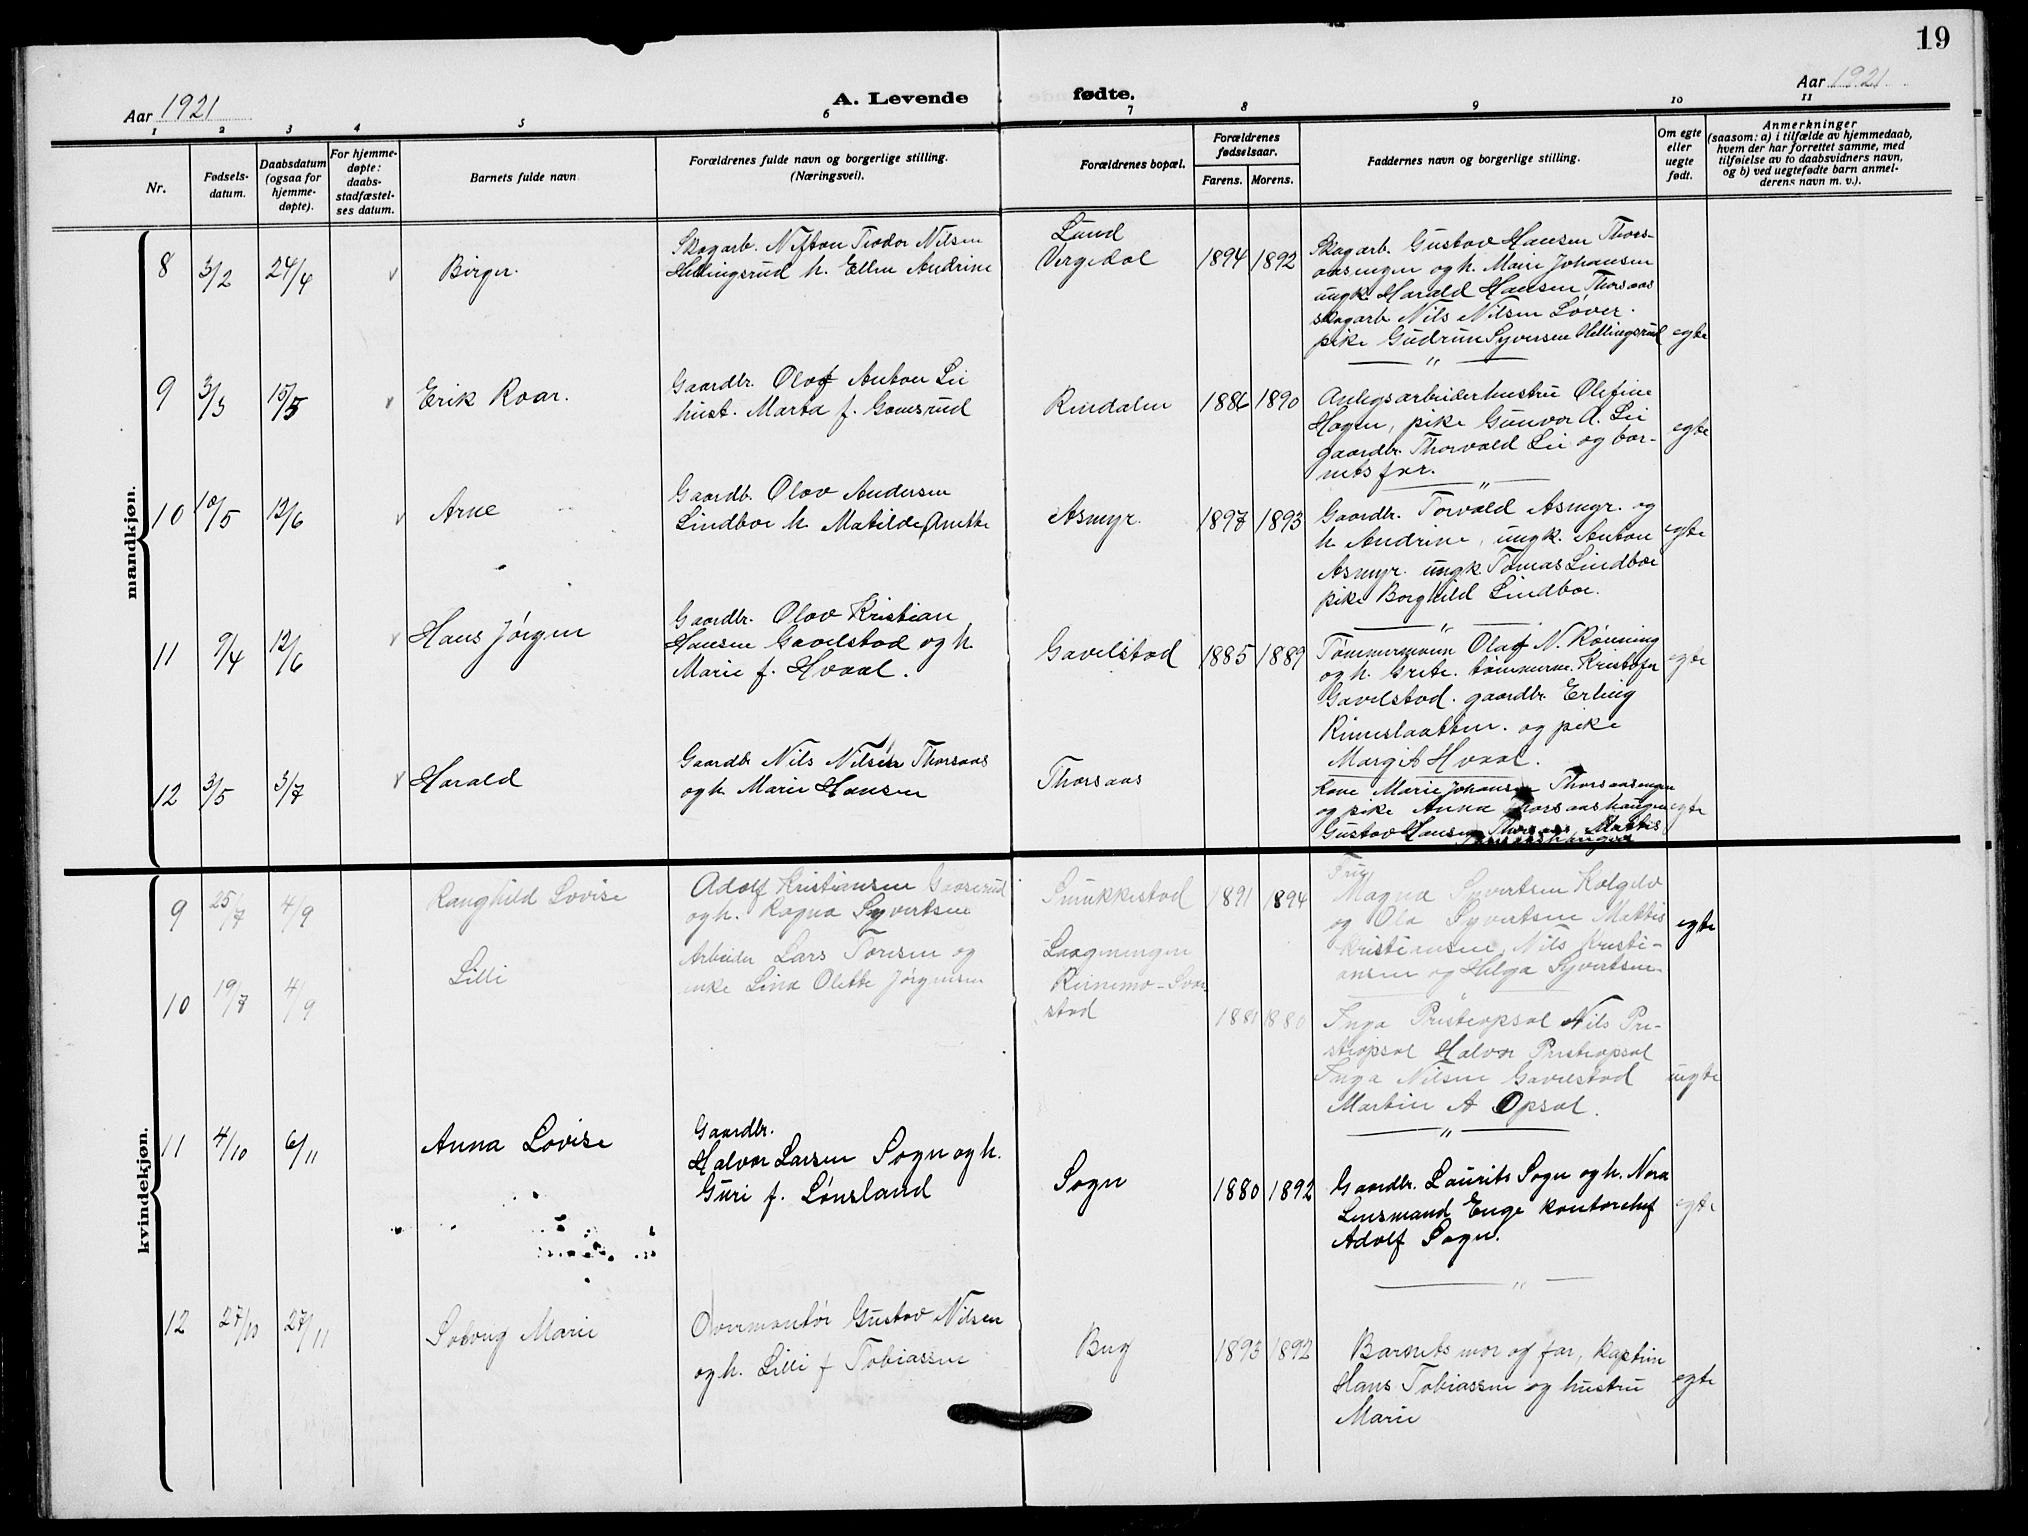 19
Aar 1921
A. Levende fødte.
Aar 1921
1 2 3 4 5 6 7 8 9 10 11
Nr.
Fødsels-
datum.
Daabsdatum
(ogsaa for
hjemme-
døpte).
For hjemme-
døpte:
daabs-
stadfæstel-
ses datum.
Barnets fulde navn
Forældrenes fulde navn og borgerlige stilling.
(Næringsvei).
Forældrenes bopæl.
Forældrenes
fødselsaar.
Farens. Morens.
Faddernes navn og stilling.
Om egte
eller
uegte
født.
Anmerkninger
(saasom: a) i tilfælde av hjemmedaab,
hvem der har forrettet samme, med
tilføielse av to daabsvidners navn,
og b) ved uegtefødte barn anmel-
derens navn m. v.).
mandkjøn.
8 3/2 24/4 Birger.
Skogarb. Teodor Nilsen
h. Ellen Andrine
Lund
1894 1892
Skogarb. Gustav Hansen Thors-
aasengen og h. Marie Johansen
ungk. Harald Hansen Thorsaas
skogarb. Nils Nilsen Løver.
pike Gudrun Syversen Hellingsrud egte
9 3/3 15/5 Erik Roar.
Gaardbr. Olaf Anton Lie
hust. Marta f. Gomsrud
1886 1890
Anlegsarbeiderhustru Olefine
Hagen, pike Gunvor A. Lie
gaardbr. Thorvald Lie og bar-
nets far.
egte
10 10/5 12/6 Arne
Gaardb. Olav Andersen
Lindboe h. Matilde Anette
Asmyr.
1897 1893
Gaardbr. Torvald Asmyr. og
h. Andrine, ungk. Anton
Asmyr. ungk. Tomas Lindboe
pike Borghild Lindboe.
egte
11 9/4 12/6 Hans Jørgen
Gaardbr. Olav Kristian
Hansen Gavelstad og h.
Marie f. Hvaal.
Gavelstad
1885 1889
Tømmermann Olaf N. Rønning
og h. Grete. tømmerm. Kristofer
Gavelstad. gaardbr. Erling
og pike
Margit Hvaal.
egte
12 3/5 3/7 Harald
Gaardbr Nils Nilsen Thorsaas
og h. Marie Hansen
Thorsaas
Kone Marie Johansen Thorsaasengen
og pike Anna Thorsaashaugen
Gustav Hansen Thorsaas Mattis
Thorsaashaugen
egte
kvindekjøn.
9 25/7 4/9 Ranghild Lovise
Adolf Kristiansen Gaaserud
og h. Ragna Syvertsen
Smukkestad
1891 1894
Fru
Magna Syvertsen
og Ola Syvertsen Mattis
Kristiansen, Nils Kristi-
ansen og Helga Syvertsen.
egte
10 19/7 4/9 Lilli
Arbeider Lars Toresen og
enke Lina Olette Jørgensen
Laageningen
Rinnemo - Svar
stad
1881 1880
Inga Presteopsal Nils Pre-
steopsal Halvor Presteopsal
Inga Nilsen Gavelstad
Martin A Opsal.
uegte
11 4/10 6/11 Anna Lovise
Gaardbr.
Halvor Larsen Sogn og h.
Guri f. Lønsland
Sogn
1880 1892
Gaardbr. Laurits Sogn og h. Nora
Lensmand Enge kontorchef
Adolf Sogn.
egte
12 27/10 27/11 Solveig Marie
Overmontør Gustav Nilsen
og h. Lilli f Tobiassen
Berg
1893 1892
Barnets mor og far, kaptein
Hans Tobiassen og hustru
Marie
egte